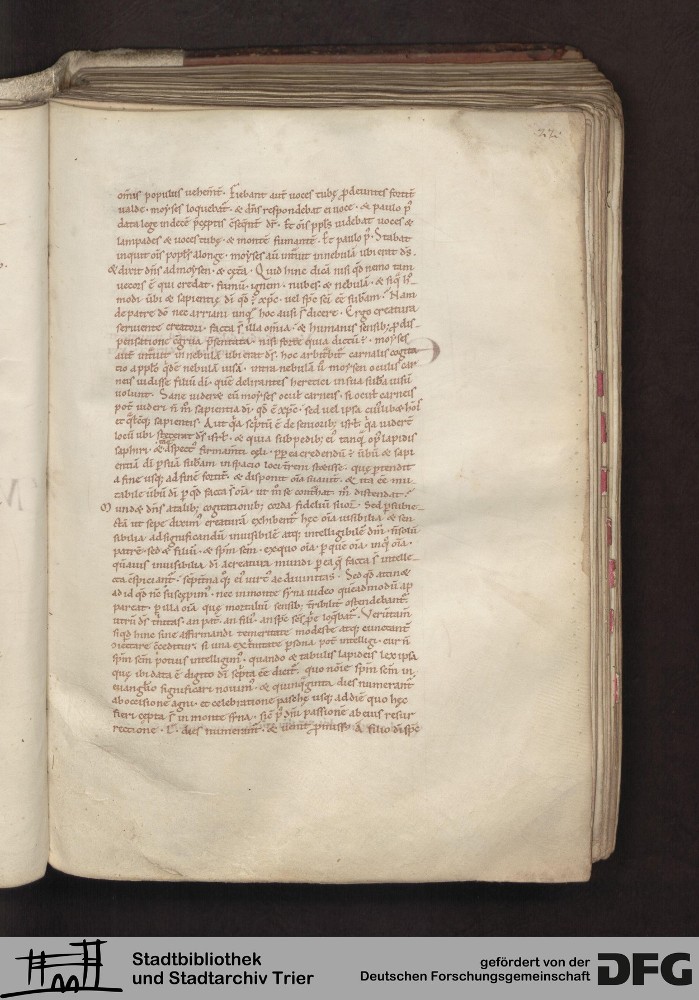 22
omis populus uehemt. Fiebant aut uoces tube
ualde. moyses loquebat. & dns respondebat ei uoce. & paulo p
data lege in dece Et ois ppls uidebat uoces &
lampades & uoces tube. & monte fumante. Et paulo p. Stabat
inquit a longe. moyses aut intuit in nebula ubi erat ds.
& dixit dns ad moysen. & ceta. Quid hinc dica nisi qd nemo tam
uecors e qui credat. fumu. igne. nubes. & nebula. &
modi. ubi & sapientie di xpc. uel sps sci ee subam. Nam
de patre do nec arriani unq hoc ausi s dicere. Ergo creatura
seruiente creatori. facta s illa omia. & humanis
pensatione psentata. nisi forte quia dictu e. moyses
aut intuit in nebula ubi erat ds. hoc carnalis cogita
tio nebula uisa. intra nebula u moysen oculis car
neis uidisse filiu di. que delirantes heretici in sua uisu
uolunt. Sane uidere eu moyses ocul carneis. si ocul carneis
pot uideri n m sapientia di. qd e xpc. sed uel ipsa
sapientis. Aut qa sceptu e de seniorib isrl. qa uider
locu ubi steterat ds isrl. & quia sub pedib ei tanq lapidis
saphiri. firmamti celi. ppea credendu e ubu & sapi
entia di subam in spacio loci stetisse. que ptendit
a fine usq ad fine fortit. & disponit oia suauit. & ita ee mu
tabile ubu di p qd facta s oia. ut m se m distendat.
Mundet dns a talib cogitationib corda fideliu suor. Sed
cta ut sepe dixim creatura exhibent hec oia uisibilia & sen
sibilia. ad significandu inuisibile atq intelligibile dm. n solu
patre. sed & filiu. & spm scm. ex quo oia. p que oia. in q oia.
quauis inuisibilia di a creatura mundi p ea q facta s intelle
cta sempitna q ei uirt ac diuinitas. Sed qd attinet
ad id qd nc suscepim. nec in monte syna uideo
pareat. p illa oia que mortaliu sensib tribilit ostendebant.
utru ds tnitas. an pat. an fili. an sps scs
si qd hinc sine affirmandi temeritate modeste atq cunctant
si una ex tnitate psona pot intelligi. cur n
spm scm potius intelligim. quando & tabulis lapideis lex ipsa
que ibi data e digito di scpta ee dicit. quo noie spm scm in
euanglio significari nouim. & quinqginta dies numerant
ab occisione agni. et celebratione pasche usq ad die quo hec
fieri cepta s in monte syna. p dni passione ab eius resur
rectione. L. dies numerant. & uenit pmissus a filio di sps
Stadtbibliothek
und Stadtarchiv Trier
gefördert von der
Deutschen Forschungsgemeinschaft
DFG